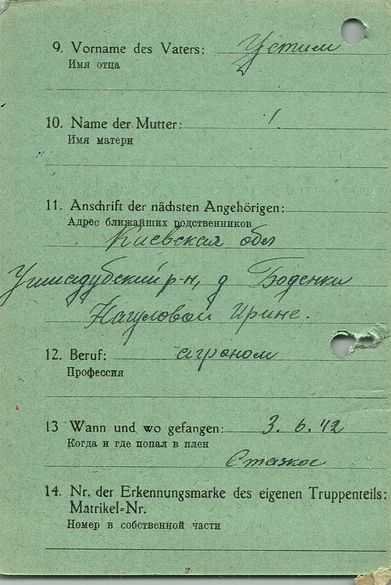 9. Vorname des Vaters: Устим
Имя отца
10. Name der Mutter:
Имя матери
11. Anschrift der nächsten Angehörigen:
Адрес ближайших родственников
Киевская обл
р-н, д Боденки
Нагуловой Ирине.
12. Beruf: агроном
Профессия
13 Wann und wo gefangen: 3. 6. 42
Когда и где попал в плен
14. Nr. der Erkennungsmarke des eigenen Truppenteils:
Matrikel-Nr.
Номер в собственной части